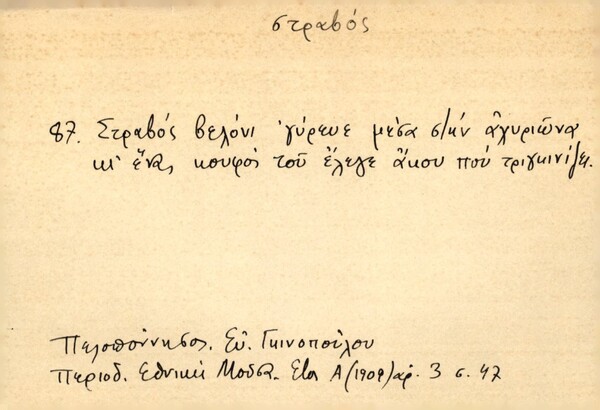 στραβός
87. Στραβός βελόνι 'γύρευε μέσα στὴν ἀχυριῶνα
κι' ἕνας κουφὸς τοῦ ἔλεγε ἄκου ποὺ τριγκινίζει.
Πελοπόννησος. Εὐ. Γκινοπούλου
Περιοδ. Εθνική Μούσα. Έτος Α (1909) αρ. 3 σ. 47